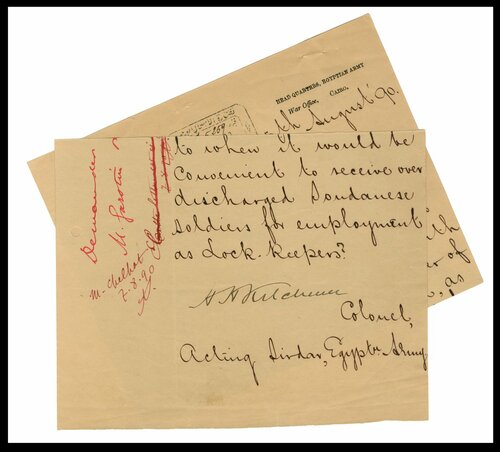 HEAD QUARTERS, EGYPTIAN ARMY
War Office, CAIRO.
th August '90.
to when it would be
convenient to receive over
discharged Soudanese
soldiers for employment
as Lock-keepers?
H H Kitchener
Colonel,
Acting Sirdar, Egyptn. Army
th
r of
, as
Demander
M. Garstin
M. Chelhat
7.8.90